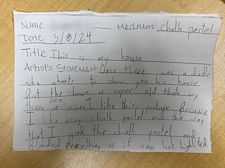 Name Medium chalk pastel
Date 3/8/24
Title This is my house
Artist's Statement Once there was a child
who wants to draw his house.
But the house is super old that
there I like this picture Because
I like using chalk pastel and the way
that I used the chalk pastel and
blended everything so it can look lighted.